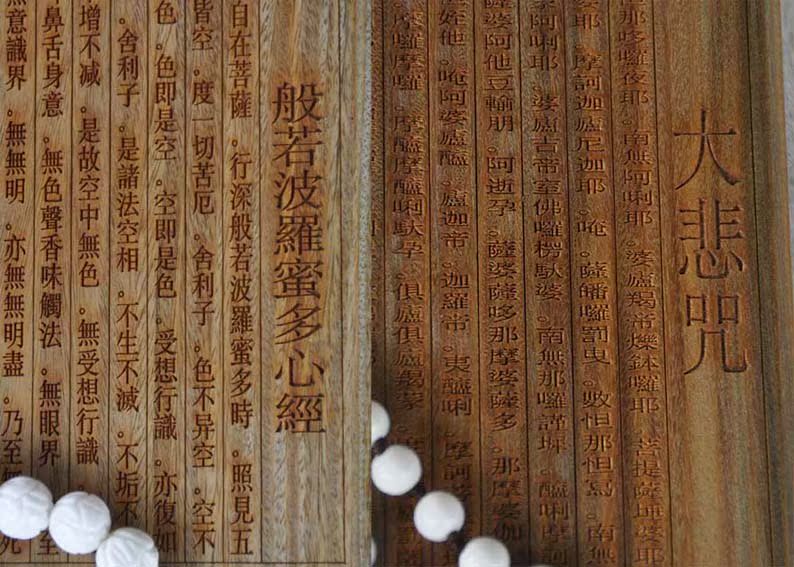 大悲咒
那哆囉夜耶。南無阿唎耶。婆盧羯帝爍鉢囉耶。菩提薩埵婆耶
耶。摩訶迦盧尼迦耶。唵。薩皤囉罰曳。數怛那怛寫。南無
阿唎耶。婆盧吉帝室佛囉楞馱婆。南無那囉謹墀。醯唎
婆阿他豆輸朋。阿逝孕。薩婆薩哆那摩婆薩多。那摩婆伽
姪他。唵阿婆盧醯。盧迦帝。迦羅帝。夷醯唎。摩訶
摩囉摩囉。摩醯摩醯唎馱孕。俱盧俱盧羯蒙。
般若波羅蜜多心經
自在菩薩。行深般若波羅蜜多時。照見五
皆空。度一切苦厄。舍利子。色不异空。空不
色。色即是空。空即是色。受想行識。亦復如
舍利子。是諸法空相。不生不滅。不垢不
增不減。是故空中無色。無受想行識
鼻舌身意。無色聲香味觸法。無眼界。至
無意識界。無無明。亦無無明盡。乃至無死